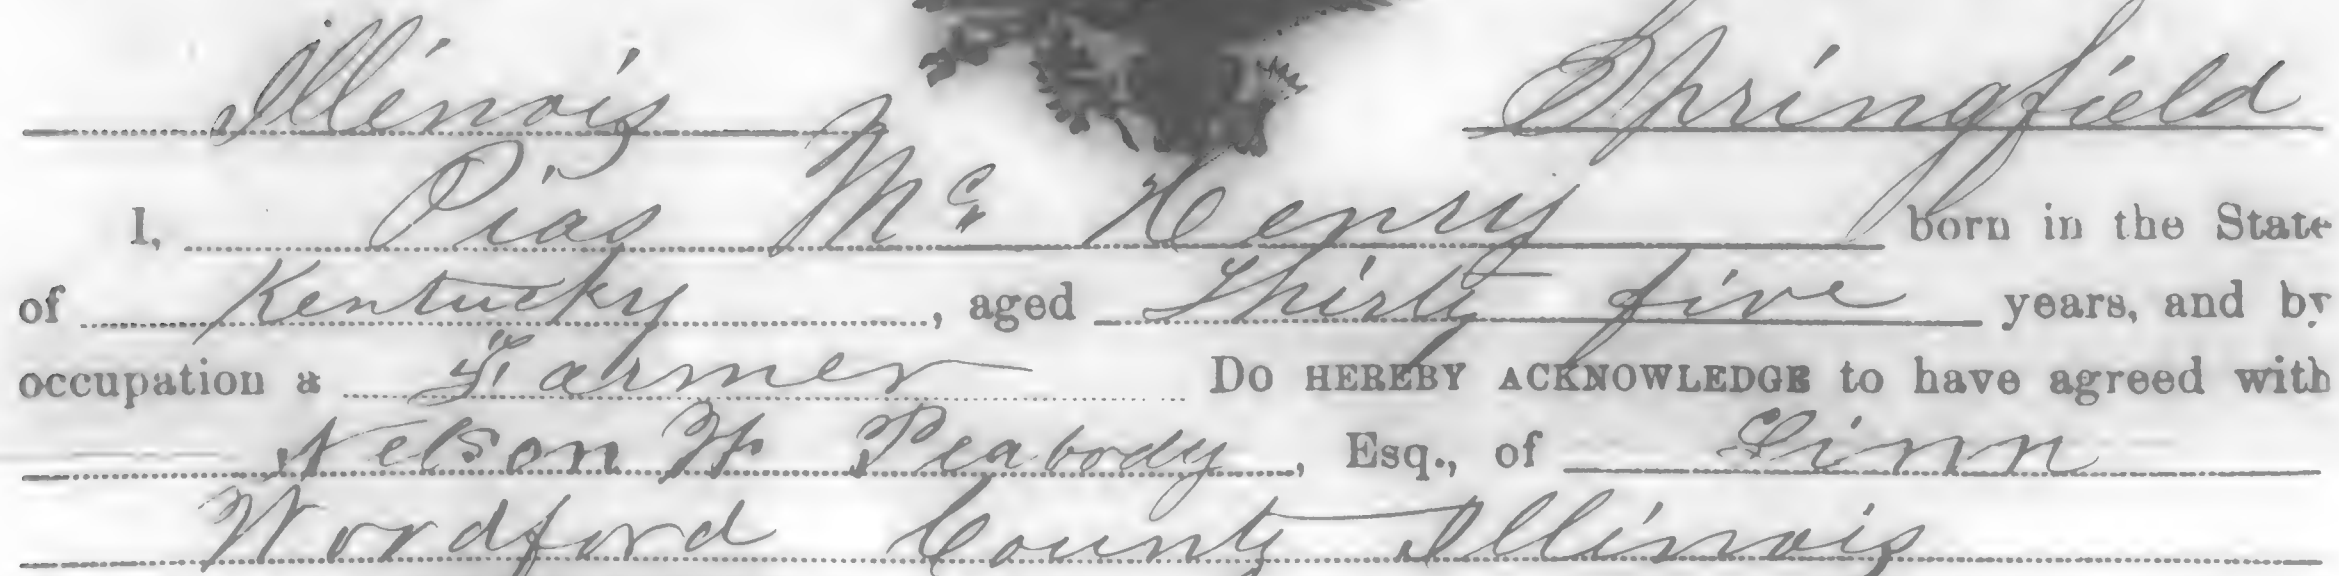 Illinois Springfield
I, Pias Mc Henry born in the State
of Kentucky, aged Thirty five years, and by
occupation a Farmer Do HEREBY ACKNOWLEDGE to have agreed with
Nelson W Peabody, Esq., of Linn
Woodford County Illinois